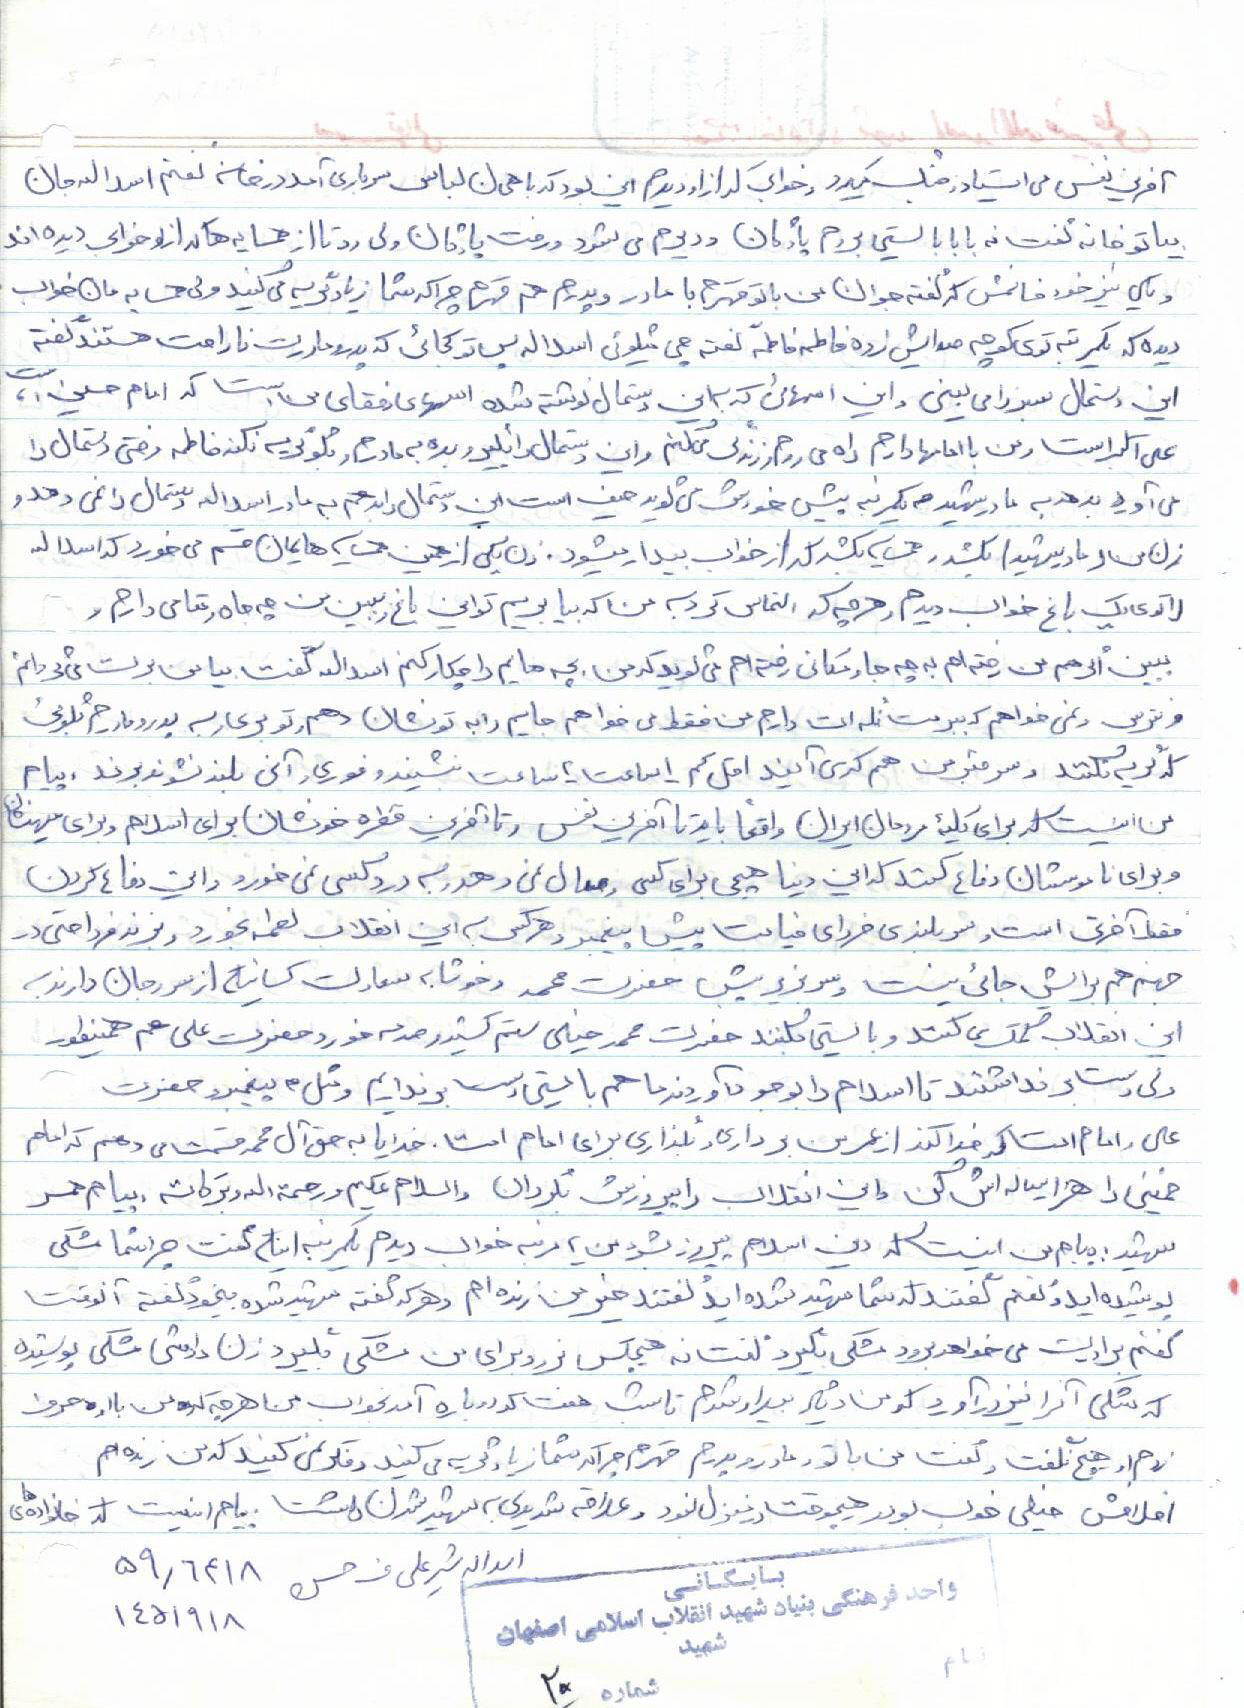 آخرین نفس می ایستیاد و جنگ میکرد و خوابی که از او دیدم این بود که با همان لباس سربازی آمد در خانه گفتم اسداله جان
بیا تو خانه گفت نه بابا بایستی بروم پادگان و دیرم می شود و رفت پادگان ولی دو تا از همسایه ها که از او خوابی دیده اند
و یکی نیز خود خانمش که گفته جوان من با تو قهرم با مادر و پدرم هم قهرم چرا که شما زیاد گریه می کنید ولی همسایه مان خواب
دیده که یکمرتبه توی کوچه صدایش زده فاطمه فاطمه گفته چی میگوئی اسداله پس تو کجائی که پدر و مادرت ناراحت هستند گفته
این دستمال سبز را می بینی و این اسمهائی که به این دستمال نوشته شده اسمهای رفقای من است که امام حسین است
علی اکبر است و من با امامها دارم راه می روم و زندگی میکنم و این دستمال را بگیر و بده به مادرم و بگو گریه نکند فاطمه وقتی دستمال را
می آورد بدهد به مادر شهید یکمرتبه پیش خودش می گوید حیف است این دستمال را بدهم به مادر اسداله دستمال را نمی دهد و
زن من و مادر شهید بکشد و همسایه بکشد که از خواب بیدار میشود. زن یکی از همین همسایه هایمان قسم می خورد که اسداله
را توی یک باغ خواب دیدم و هرچه که التماس کرد به من که بیا بریم توی باغ و ببین من چه جاه و مقامی دارم و
ببین آنهم من رفته ام به چه جا و مکانی رفته ام می گوید که من بچه هایم را چکار کنم اسداله گفت بیا من برت می گردانم
و نترس و نمی خواهم که ببرمت گله ات دارم من فقط می خواهم جایم را به تو نشان دهم و تو بروی و به پدر و مادرم بگوئی
که گریه نکنند و سر قبر من هم که می آیند اقل کم ۱ ساعت ۲ ساعت بنشینند و فوری و آنی بلند نشوند بروند. پیام
من اینست که برای کلیه مردمان ایران واقعاً باید تا آخرین نفس و تا آخرین قطره خونشان برای اسلام و برای میهنشان
و برای ناموسشان دفاع کنند که این دنیا هیچی برای کسی وصال نمی دهد و به درد کسی نمی خورد و این دفاع کردن
فقط آخرتی است و سر بلندی فردای قیامت پیش پیغمبر و هرکس به این انقلاب لطمه بخورد و بزند فردا حتی در
جهنم هم برایش جائی نیست و سر بزیر پیش حضرت محمد و خوشا به سعادت کسانیکه از سر و جان دارند به
این انقلاب کمک می کنند و بایستی بکنند حضرت محمد خیلی ستم کشید و صدمه خورد و حضرت علی هم همینطور
ولی دست بر نداشتند تا اسلام را بوجود آوردند ما هم بایستی دست بر نداریم و مثل پیغمبر و حضرت
علی و امام امت که خدا کند از عمر من برداری و بگذاری برای امام امت. خدایا به حق آل محمد قسمت می دهم که امام
خمینی را هزار ساله اش کن و این انقلاب را پیروزش بگردان والسلام علیکم و رحمة اله و برکاته. پیام همسر
شهید: پیام من اینست که دین اسلام پیروز بشود من ۲ مرتبه خواب دیدم یکمرتبه ایشان گفت چرا شما مشکی
پوشیده اید گفتم گفتند که شما شهید شده اید گفتند خیر من زنده ام و هر که گفته شهید شده بیخود گفته آنوقت
گفتم برادرت می خواهد برود مشکی بگیرد گفت نه هیچکس نرود برای من مشکی بگیرد زن داداش مشکی پوشیده
که مشکی آنرا نیز درآورد که من دیگر بیدار شدم تا شب هفت که دوباره آمد بخواب من هرچه که من با او حرف
زدم او هیچ نگفت و گفت من با تو و مادر و پدرم قهرم چرا که شما زیاد گریه می کنید و فکر نمی کنید که من زنده ام
اخلاقش خیلی خوب بود و هیچوقت در منزل نبود و علاقه شدیدی به شهید شدن داشت. پیام اینست که خانواده های
اسداله شیر علی ف حسن ۵۹٫۶۲۱۸
۱۴۵۱۹۱۸
بایگانی
واحد فرهنگی بنیاد شهید انقلاب اسلامی اصفهان
شهید
نام
شماره ۲۰